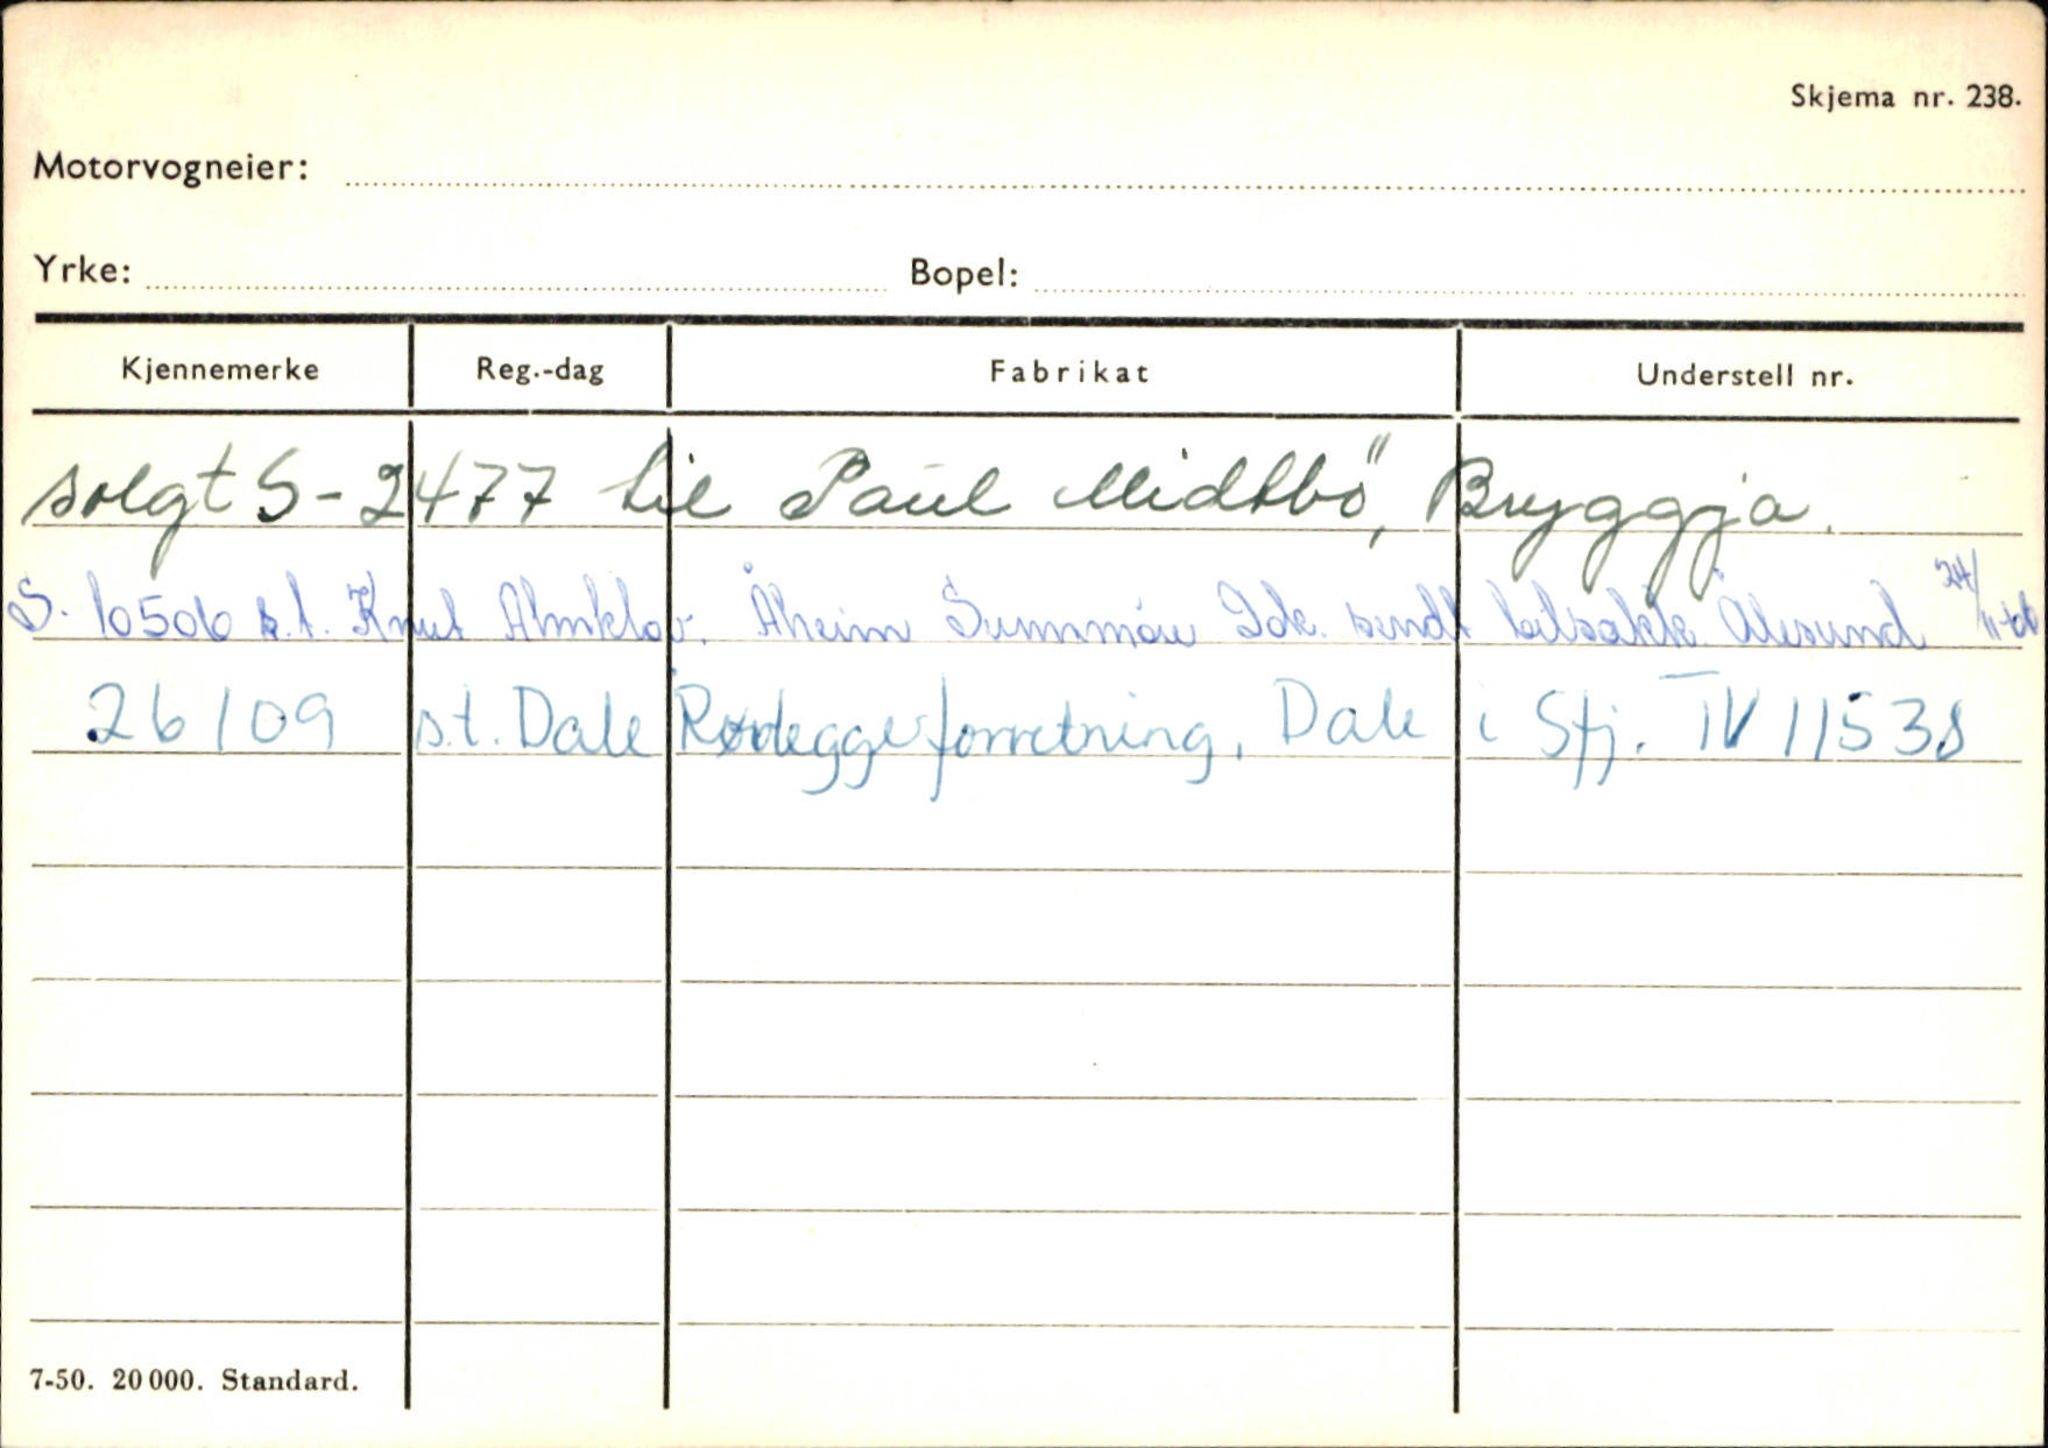 Skjema nr. 238.
Motorvogneier:
Yrke: Bopel:
Kjennemerke Reg.-dag Fabrikat Understell nr.
solgt S-2477 til Paul Midtbö, Bryggja.
S. 10506 s.t. Knut Almklov. Åheim Sunnmøre Dok. sendt bilsakk. Ålesund 24/11-66
26109 s.t. Dale forretning, Dale i Sfj. TV 11538
7-50. 20 000. Standard.